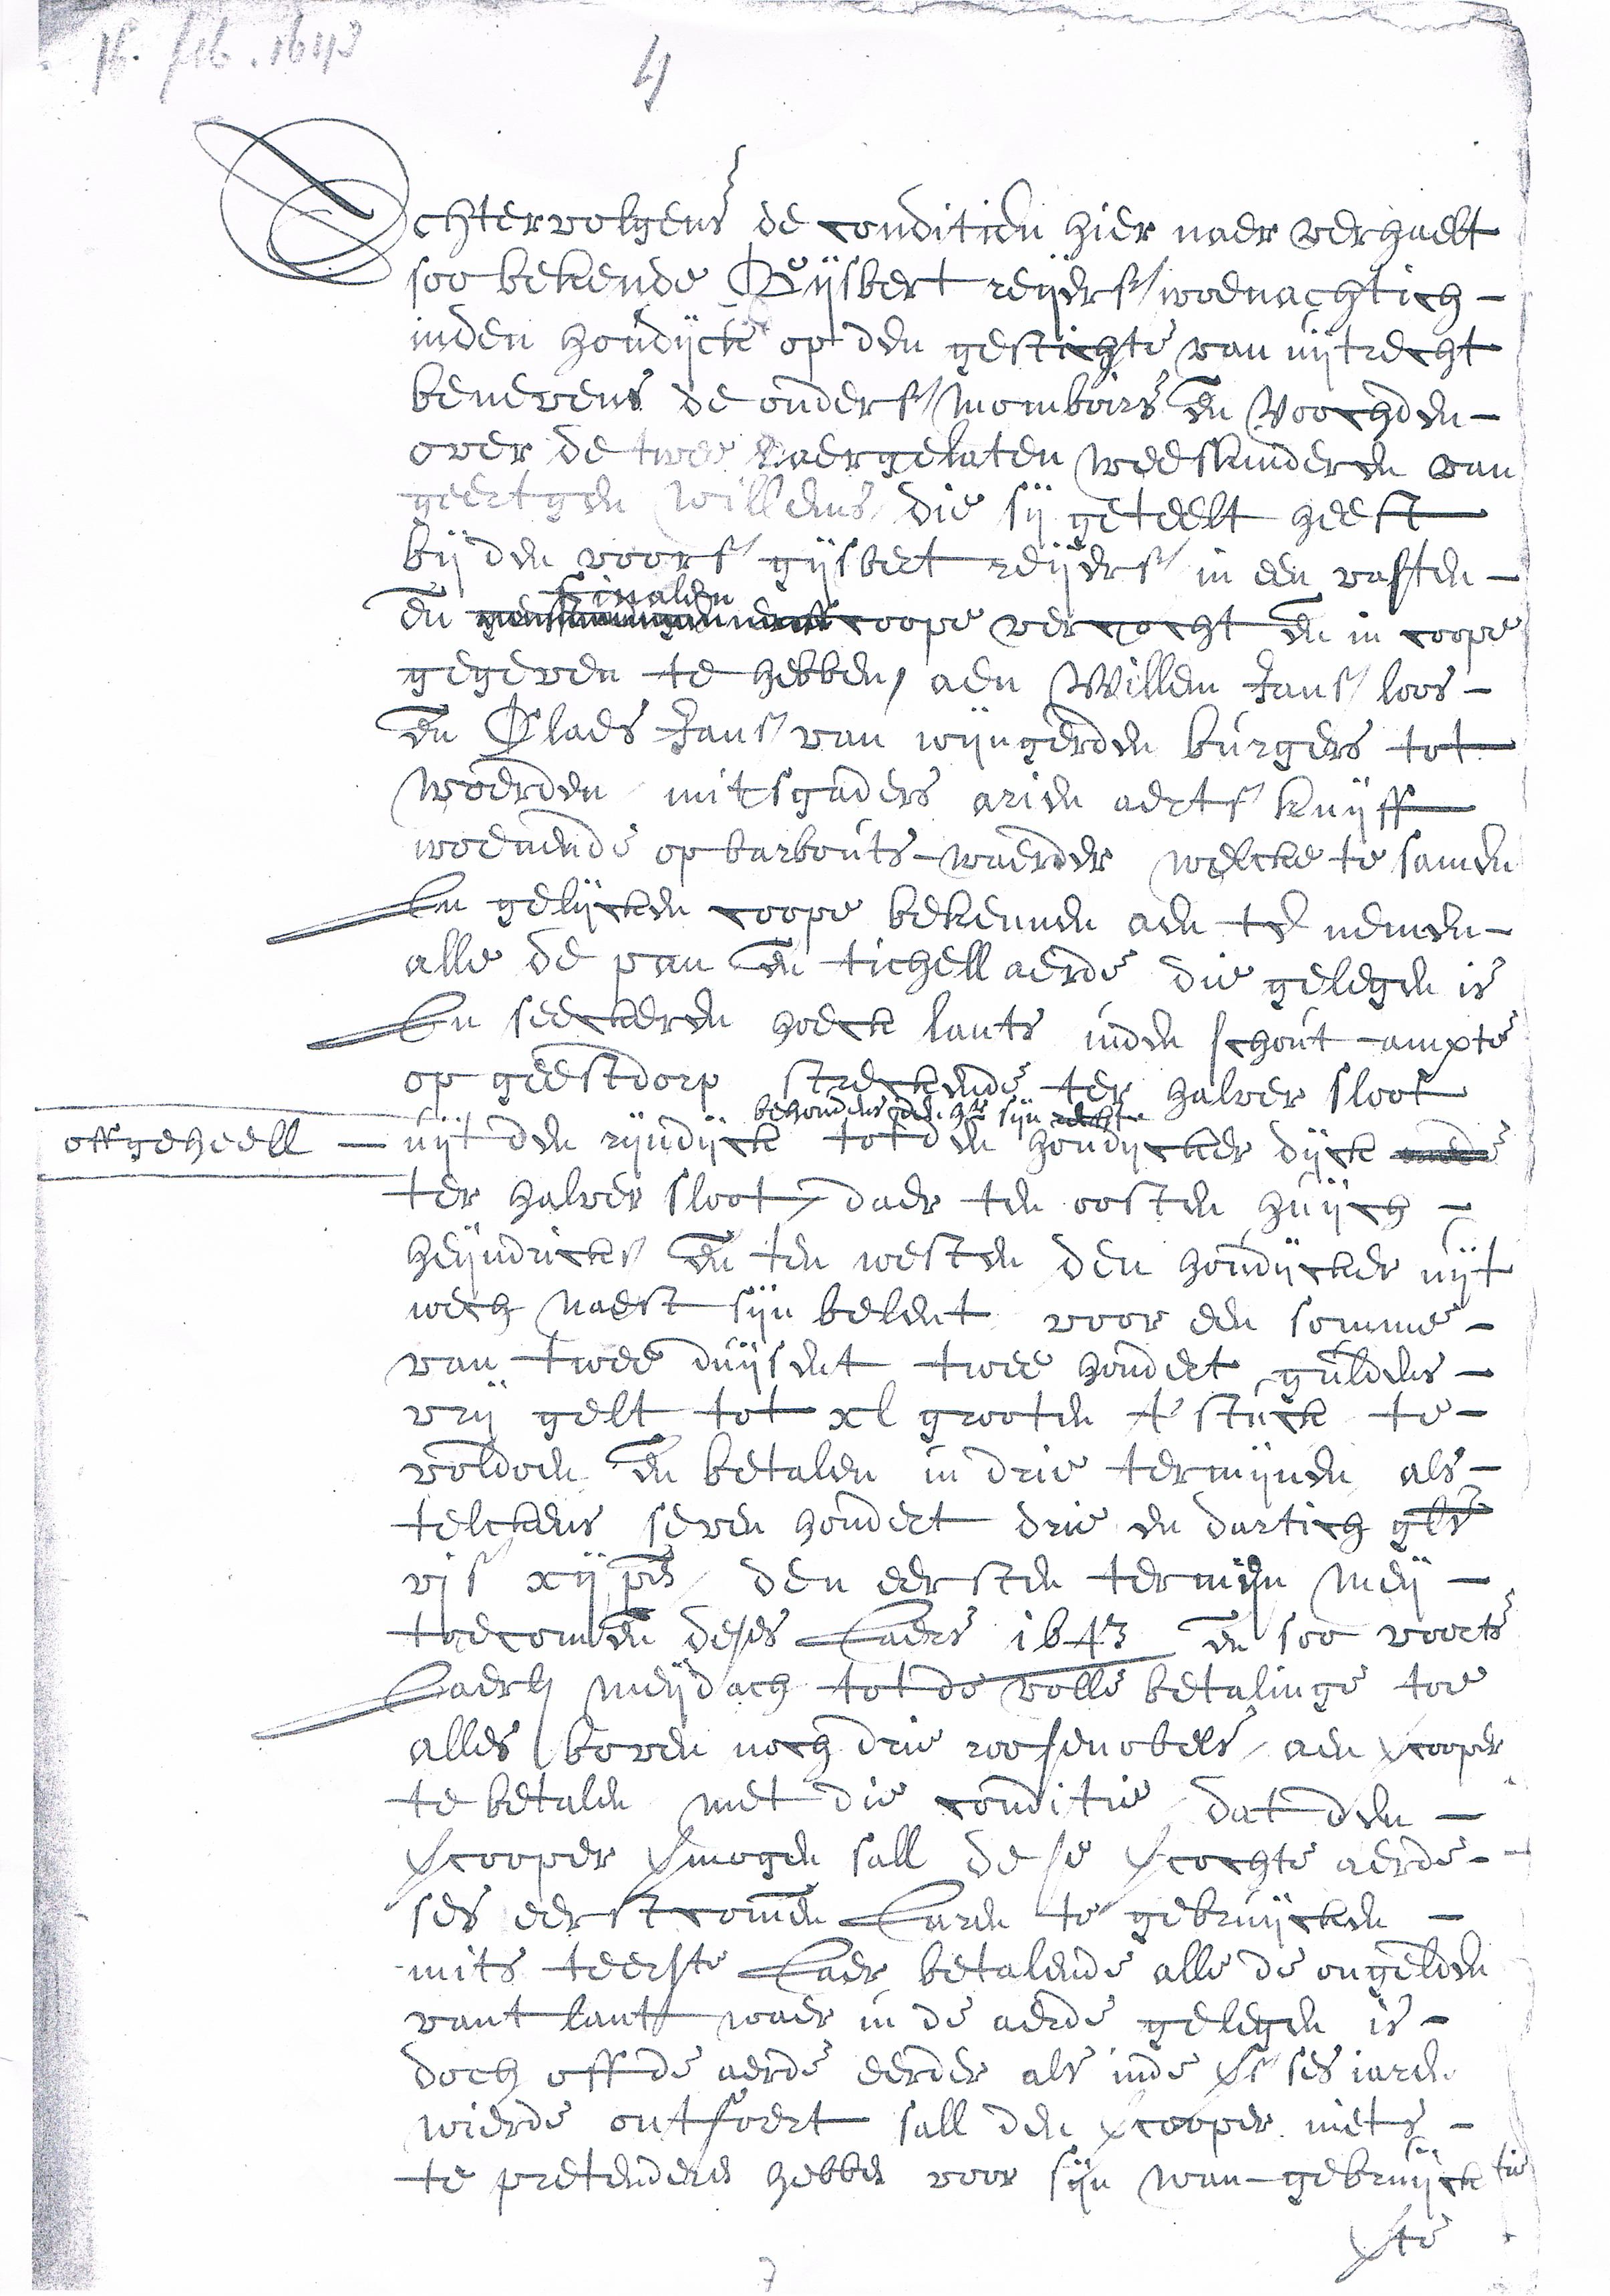 16. feb. 1643
4
Achtervolgens de conditien hier naer verhaelt
soo bekende Gijsbert reijers woenachtich -
inden houdijck op den gestichte van uijtrecht
benevens de onders momboirs en Voochden -
over de twee naergelaten weeskinderen van
geertgen willems die sij geteelt heeft
bij den voors gijsbert reijers in een vasten -
finalen
en coope vercocht en in coope
gegeven te hebben, aen Willem Jans loos -
en Claes Jans van wijngerden burgers tot
woerden mitsgaders arien aerts knijff
woenende op barbouts-waerder welcke te samen
In gelijcken coope bekennen aen te nemen -
alle de pan en tichell aerde die gelegen is
In seeckeren hoeck lants inden schout-ampte
op geestdorp streckende ter halver sloot
behoudens den hr sijn recht
offgeheell - uijt den rijndijck tot den houdijcker dijck
ter halver sloot, daer ten oosten huijch -
heijndricks en ten westen den houdijcker uijt
wech naest sijn belent voor een somme -
van twee duijsent twee hondert guldens -
vrij gelt tot xl grooten t' stuck te -
voldoen en betalen in drie termijnen als -
telckens seven hondert drie en dartich gls
vj s xij p den eersten termijn meij -
toecomen deses Jaers 1643 en soo voorts
Jaerlx meijdach tot de volle betalinge toe
alles boven noch drie roosenobels aen vcooper
te betalen met die conditie dat den -
vcooper vmogen sall dese vcochte aerde -
ses eerstcomen Jaren te gebruijcken -
mits teerste Jaer betalende alle de ongelden
vant lant waer in de aerde gelegen is -
doch off de aerde eerder als inde vs ses iaren
wierde ontfoert sall den vcooper niets -
te pretenderen hebben voor sijn wan-gebruijck
vte
7